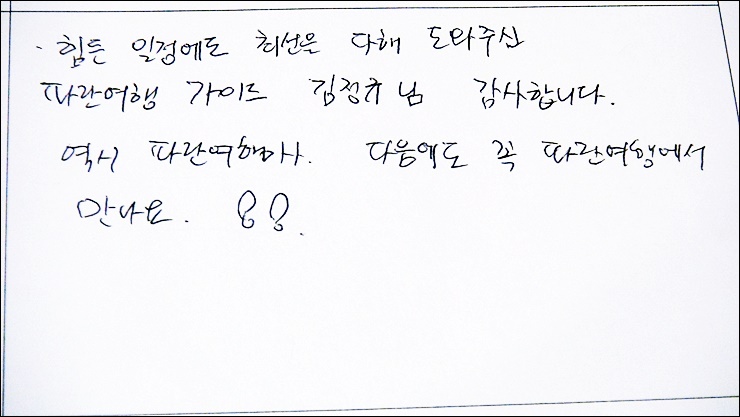 · 힘든 일정에도 최선을 다해 도와주신
파란여행 가이드 김정규님 감사합니다.
역시 파란여행사. 다음에도 꼭 파란여행에서
만나요.